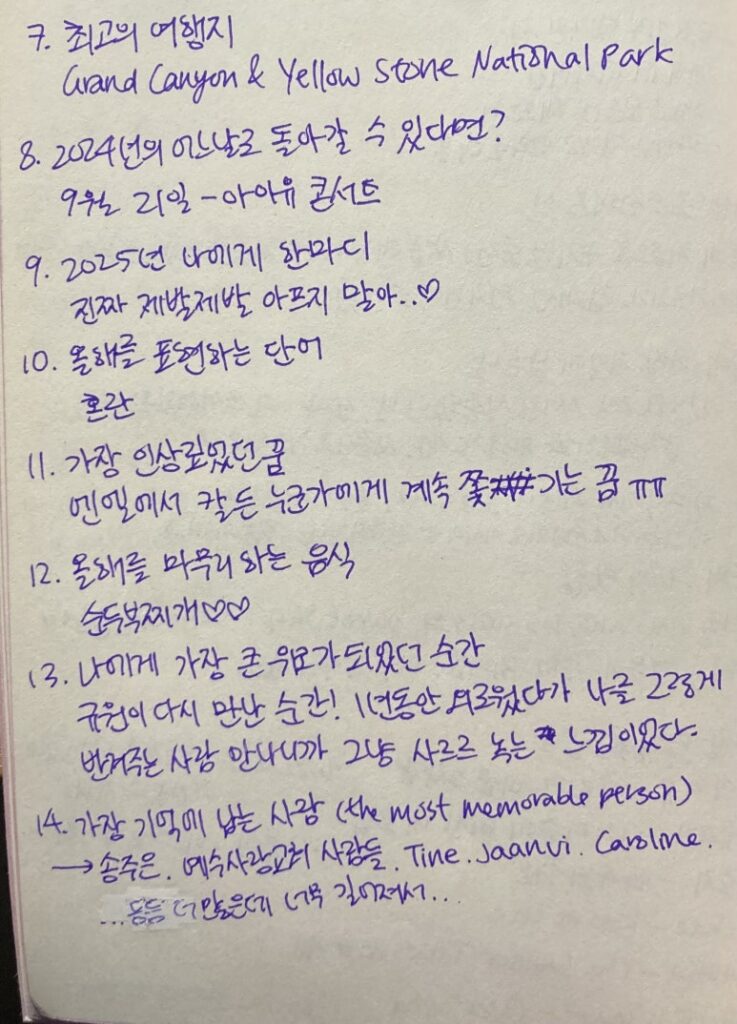 7. 최고의 여행지
Grand Canyon & Yellow Stone National Park
8. 2024년의 어느날로 돌아갈 수 있다면?
9월 21일 - 아이유 콘서트
9. 2025년 나에게 한마디
진짜 제발제발 아프지 말아..♡
10. 올해를 표현하는 단어
혼란
11. 가장 인상깊었던 꿈
엔엘에서 칼든 누군가에게 계속 쫓기는 꿈 ㅠㅠ
12. 올해를 마무리하는 음식
순두부찌개♡♡
13. 나에게 가장 큰 위로가 되었던 순간
규원이 다시 만난 순간! 1년동안 외로웠다가 나를 그렇게
반겨주는 사람 만나니까 그냥 사르르 녹는 느낌이었다.
14. 가장 기억에 남는 사람 (the most memorable person)
→ 송주은. 예수사랑교회 사람들. Tine. Jaanvi. Caroline.
...등등 더 많은데 너무 길어져서...